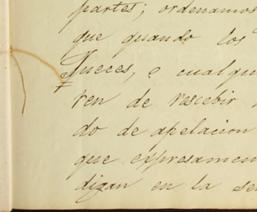 partes; ordenamos
que quando los
Jueces, o cualqu
ren de rescebir
do de apelacion
que expresamen
digan en la se